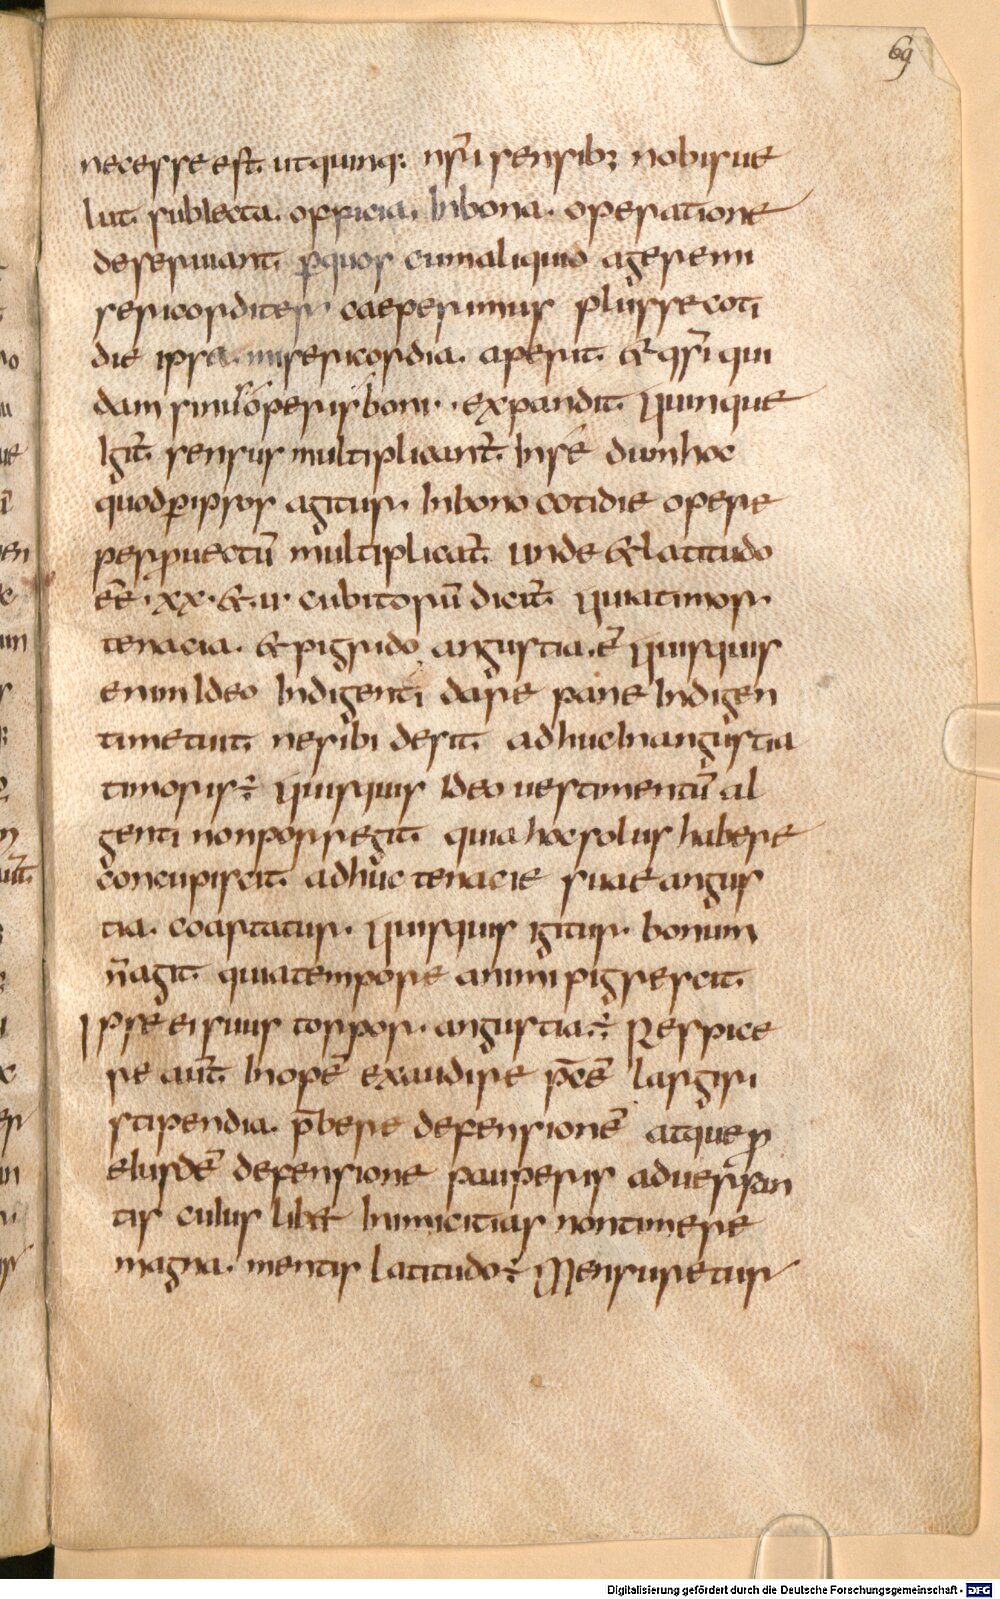 69
necesse est. ut quinq: nr̄i sensib; nobis ue
lut. subiecta. officia. In bona. operatione
deseruiant. p̱ quos cum aliquid agere mi
sericorditer. caeperimus plus se coti
die ipsa. misericordia. aperit. & qsi qui
dam similib; operis boni. expandit. Quinque
Igit̄. sensus multiplicant̄. In sē dum hoc
quod p̱ ipsos agitur. In bono cotidie opere
perfectū multiplicat̄. unde & latitudo
eē. xx. & u. cubitorū dicit̄. Quia timor.
tenacia. & pigrido angustia. ē Quisquis
enim Ideo Indigenti dare pane Indigen
ti metuit. ne sibi desit. adhuc In angustia
timoris ÷ Quisquis Ideo uestimentū al
genti non porregit. quia hoc solus habere
concupiscit. adhuc tenacie suae angus
tia. coartatur. Quisquis igitur. bonum
n̄ agit. quia tempore animi pigrescit.
Ipse ei suus torpor. angustia ÷ Respice
re aut̄. Inopē exaudire p̄cē largiri
stipendia. p̄bere defensionē atque p̱
eiusdē defensione pauperis aduersan
tis cuius lib& Inimicitias non timere
magna. mentis latitudo ÷ Mensuretur
Digitalisierung gefördert durch die Deutsche Forschungsgemeinschaft - DFG